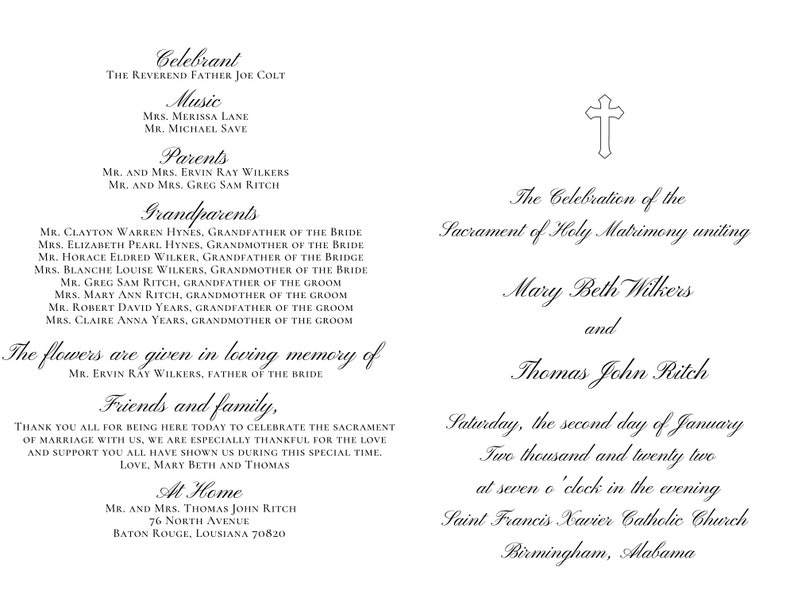 Celebrant
The Reverend Father Joe Colt
Music
Mrs. Merissa Lane
Mr. Michael Save
Parents
Mr. and Mrs. Ervin Ray Wilkers
Mr. and Mrs. Greg Sam Ritch
Grandparents
Mr. Clayton Warren Hynes, Grandfather of the Bride
Mrs. Elizabeth Pearl Hynes, Grandmother of the Bride
Mr. Horace Eldred Wilker, Grandfather of the Bridge
Mrs. Blanche Louise Wilkers, Grandmother of the Bride
Mr. Greg Sam Ritch, grandfather of the groom
Mrs. Mary Ann Ritch, grandmother of the groom
Mr. Robert David Years, grandfather of the groom
Mrs. Claire Anna Years, grandmother of the groom
The flowers are given in loving memory of
Mr. Ervin Ray Wilkers, father of the bride
Friends and family,
Thank you all for being here today to celebrate the sacrament
of marriage with us, we are especially thankful for the love
and support you all have shown us during this special time.
Love, Mary Beth and Thomas
At Home
Mr. and Mrs. Thomas John Ritch
76 North Avenue
Baton Rouge, Lousiana 70820
The Celebration of the
Sacrament of Holy Matrimony uniting
Mary Beth Wilkers
and
Thomas John Ritch
Saturday, the second day of January
Two thousand and twenty two
at seven o'clock in the evening
Saint Francis Xavier Catholic Church
Birmingham, Alabama